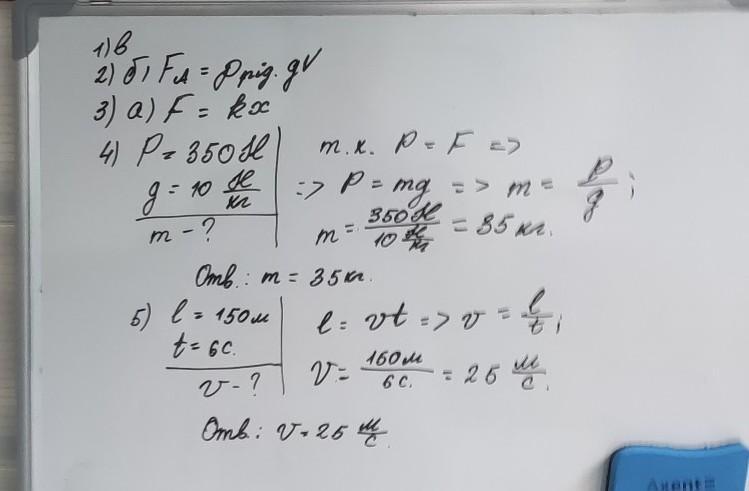 1) в
2) б) F_A = ρ рід. gV
3) а) F = kx
4) P = 350 Н
g = 10 Н/кг
m - ?
т.к. P = F =>
=> P = mg => m = P/g;
m = 350 Н / 10 Н/кг = 35 кг.
Отв.: m = 35 кг.
5) l = 150 м
t = 6 с.
v - ?
l = vt => v = l/t;
V = 150 м / 6 с. = 25 м/с.
Отв.: V = 25 м/с.
Axent